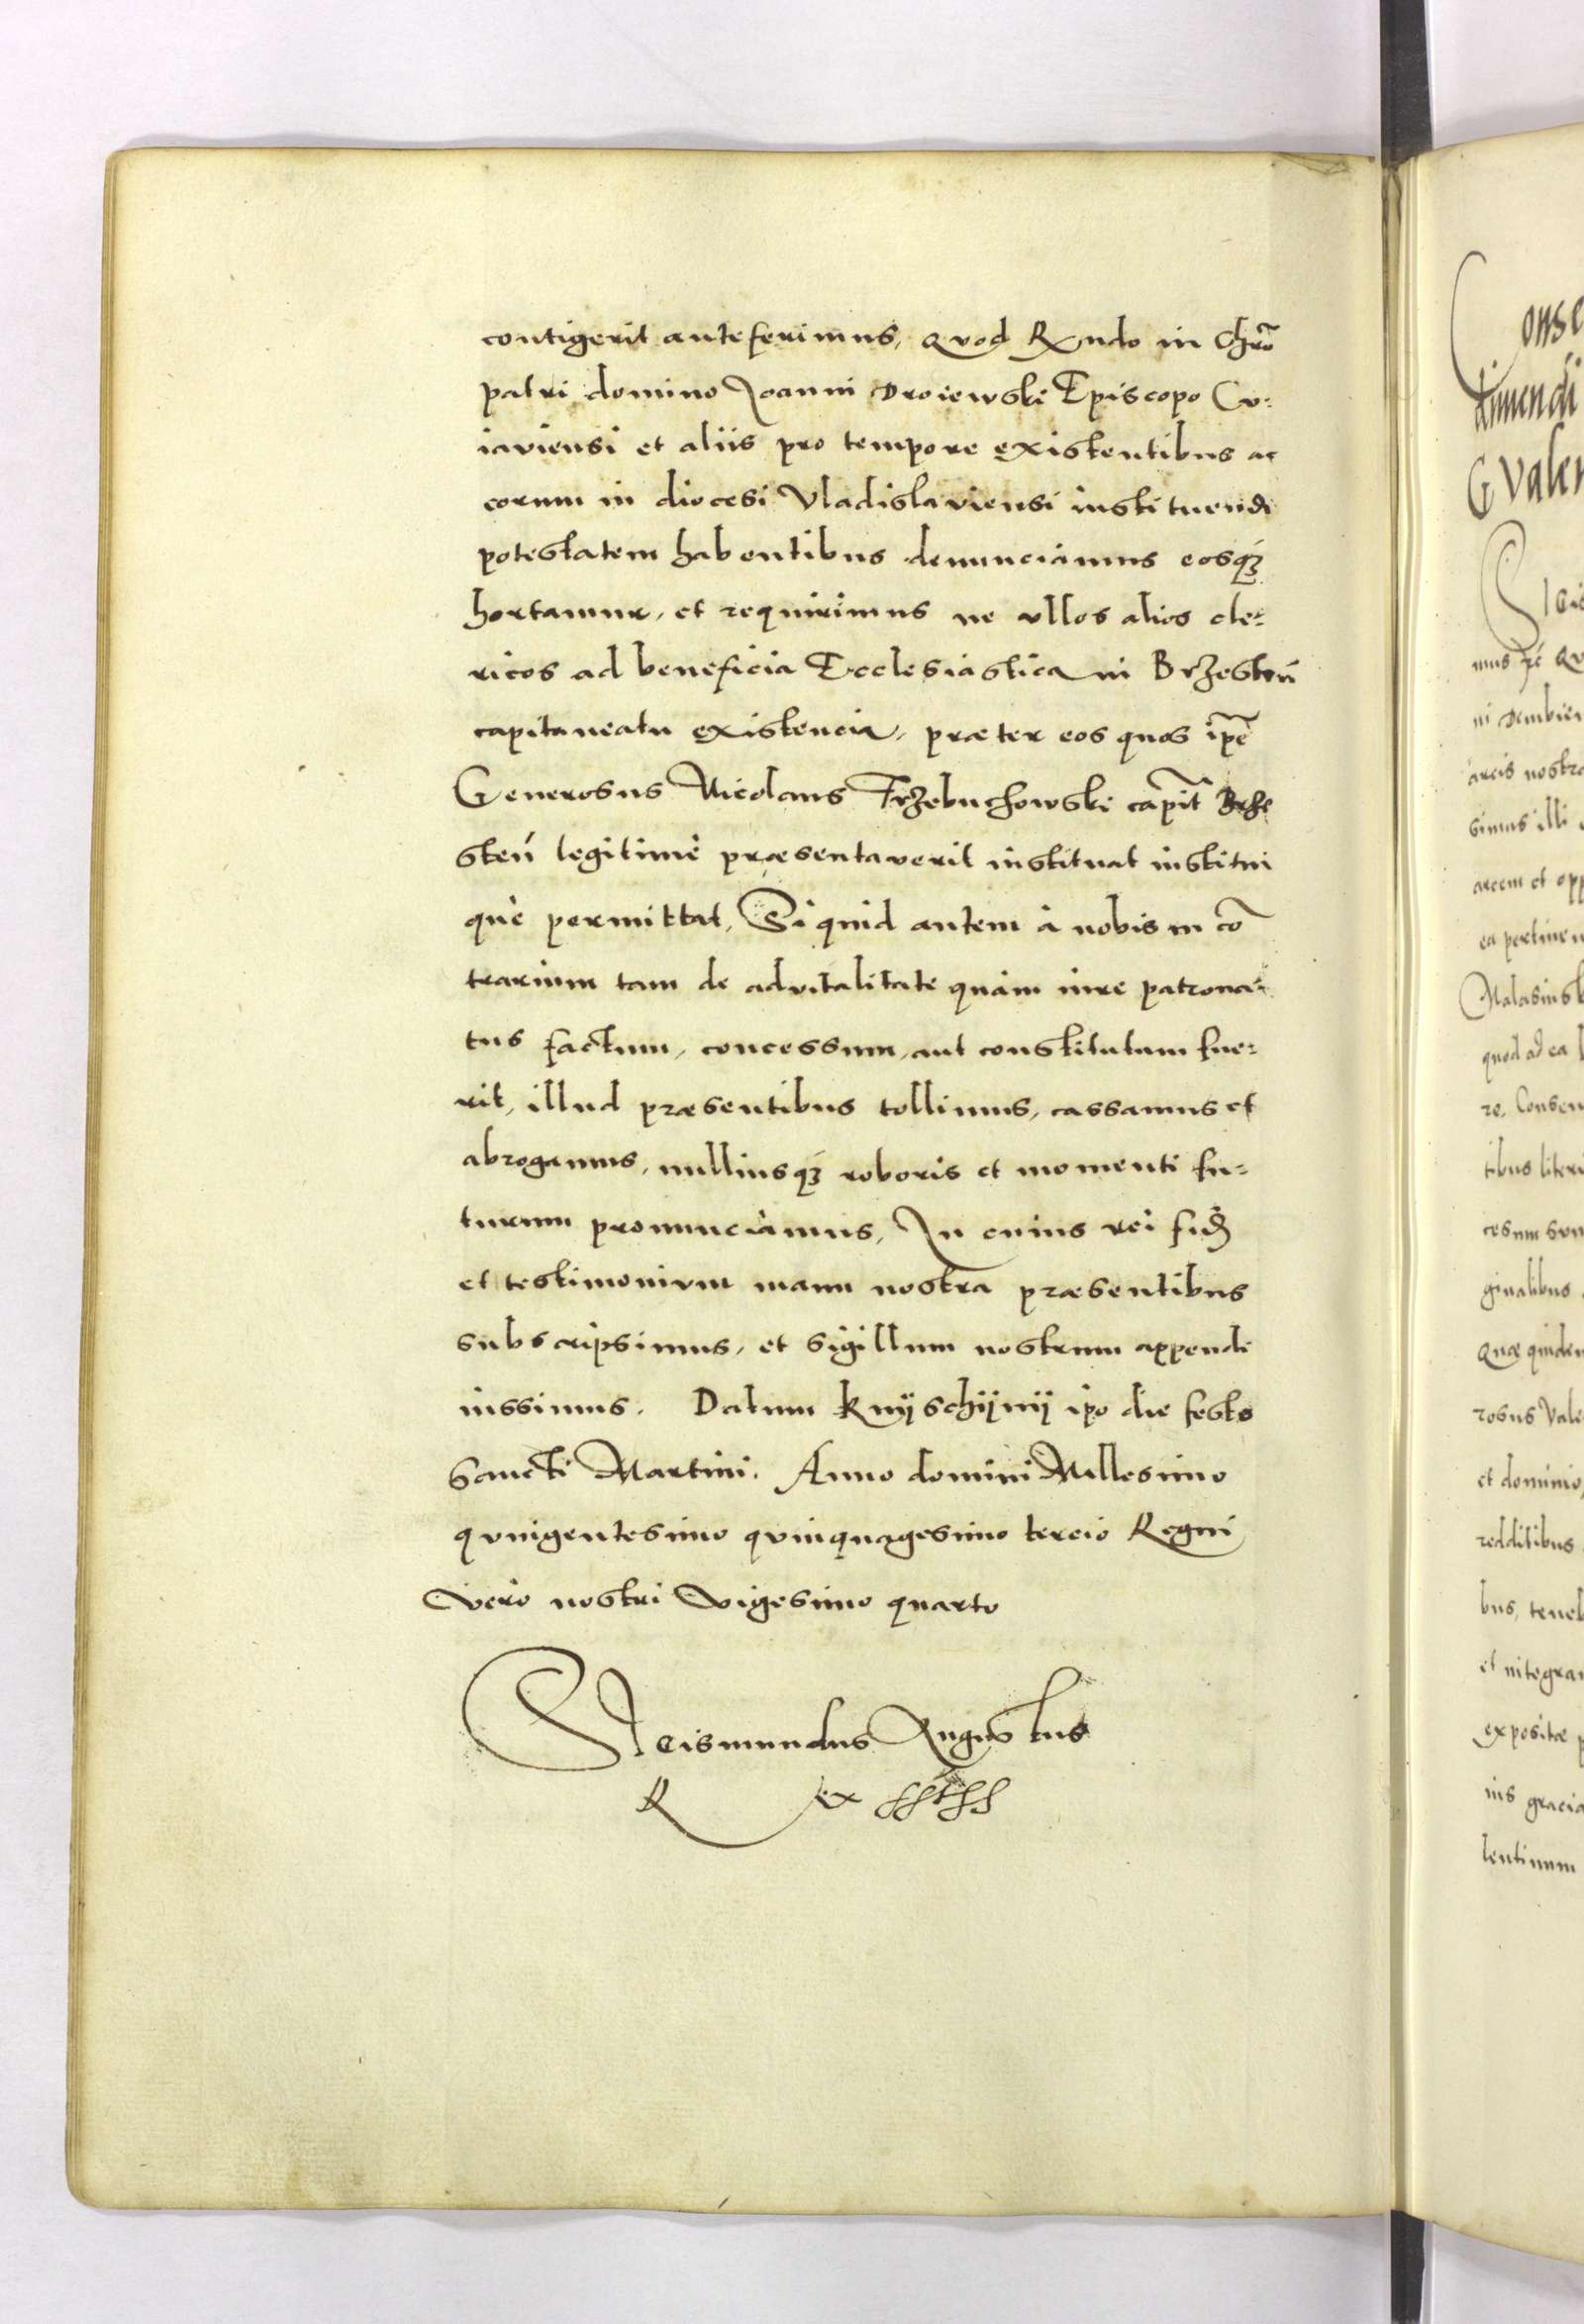 contigerit anteferimus, Quod Rndo in Chro
patri domino Joanni Droiewski Episcopo Cu-
iaviensi et aliis pro tempore existentibus ac
eorum in diocesi Vladislaviensi instituendi
potestatem habentibus denunciamus eosq3
hortamur, et requirimus ne vllos alios cle-
ricos ad beneficia Ecclesiastica in Brzesteñ
capitaneatu existencia, præter eos quos ipe
Generosus Nicolaus Trzebuchowski capit Brze
steñ legitimè præsentaverit instituat institui
què permittat, Si quid autem à nobis in co
trarium tam de advitalitate quàm iure patrona-
tus factum, concessum, aut constitutum fue-
rit, illud præsentibus tollimus, cassamus et
abrogamus, nulliusq3 roboris et momenti fu-
turum pronunciamus, In cuius rei fid
et testimonivm manu nostra præsentibus
subscripsimus, et sigillum nostrum appendi
iussimus. Datum Knÿschÿnÿ ipo die festo
Sancti Martini. Anno domini Millesimo
qvingentesimo qvinquagesimo tercio Regni
Verò nostri Vigesimo quarto
Sigismundus Augustus
Rex
onse
timendi
G Valen
mus
arcis nostra
simus illi
arcem et opp
quod ad ea
re. Consen
tibus liter
ginalibus
Quæ quidem
rosus Vale
et dominio,
redditibus
bus, tene
et integra
expositæ
ius gracia
lentinum